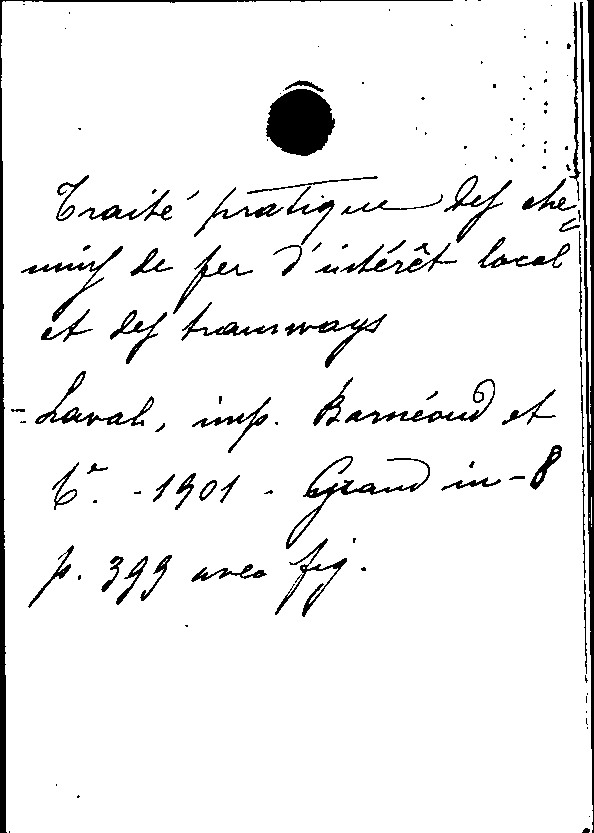 Traité pratique des che-
mins de fer d'intérêt local
et des tramways
- Laval, imp. Barnéoud et
Cie. - 1901 - Grand in-8
p. 399 avec fig.